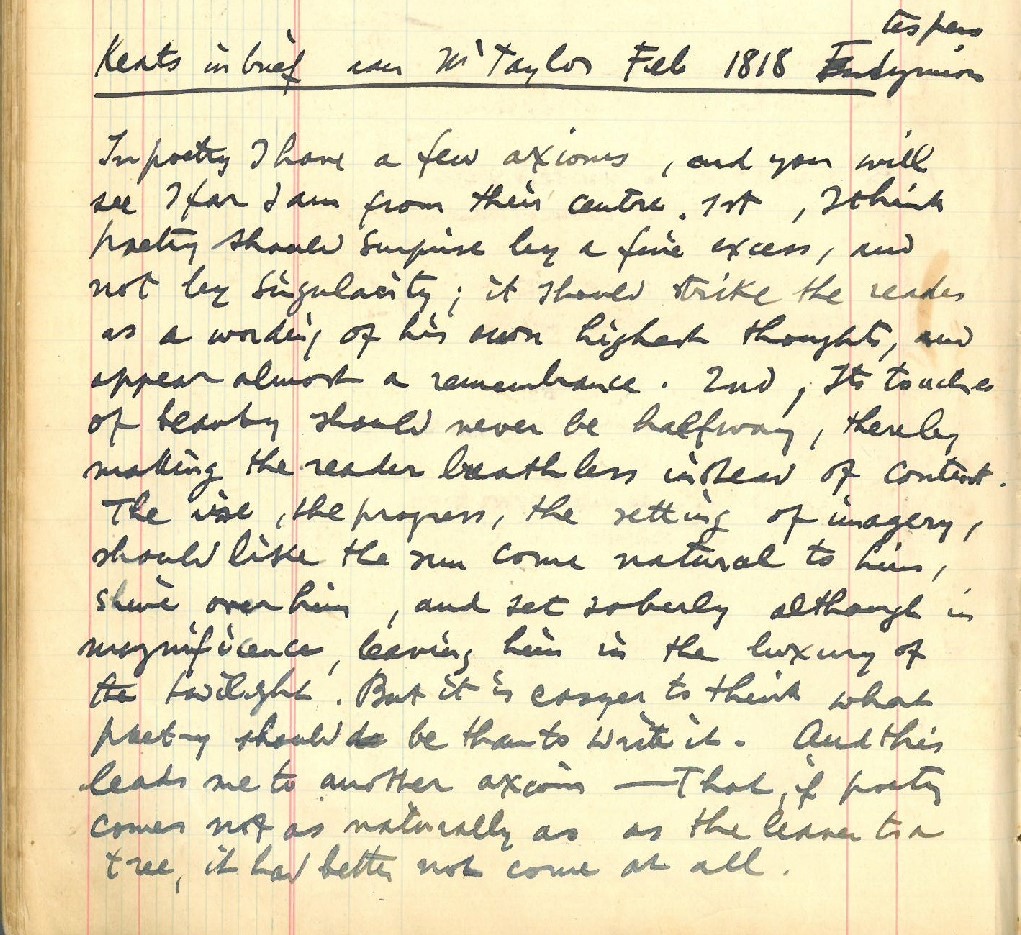 Keats in brief Mr Taylor Feb 1818 Endymion
In poetry I have a few axioms, and you will
see I far I am from their centre. 1st, I think
poetry should surprise by a fine excess, and
not by singularity; it should strike the reader
as a wording of his own highest thoughts, and
appear almost a remembrance. 2nd, Its touches
of beauty should never be halfway, thereby
making the reader breathless instead of content.
The rise, the progress, the setting of imagery,
should like the sun come natural to him,
shine over him, and set soberly although in
magnificence, leaving him in the luxury of
the twilight. But it is easyer to think what
poetry should be than to write it. And this
leads me to another axiom — That if poetry
comes not as naturally as as the leaves to a
tree, it had better not come at all.